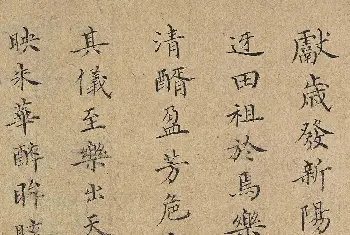 獻歳發新陽
迓田祖於焉樂
清醑盈芳卮
其儀至樂出天
映朱華醉眸